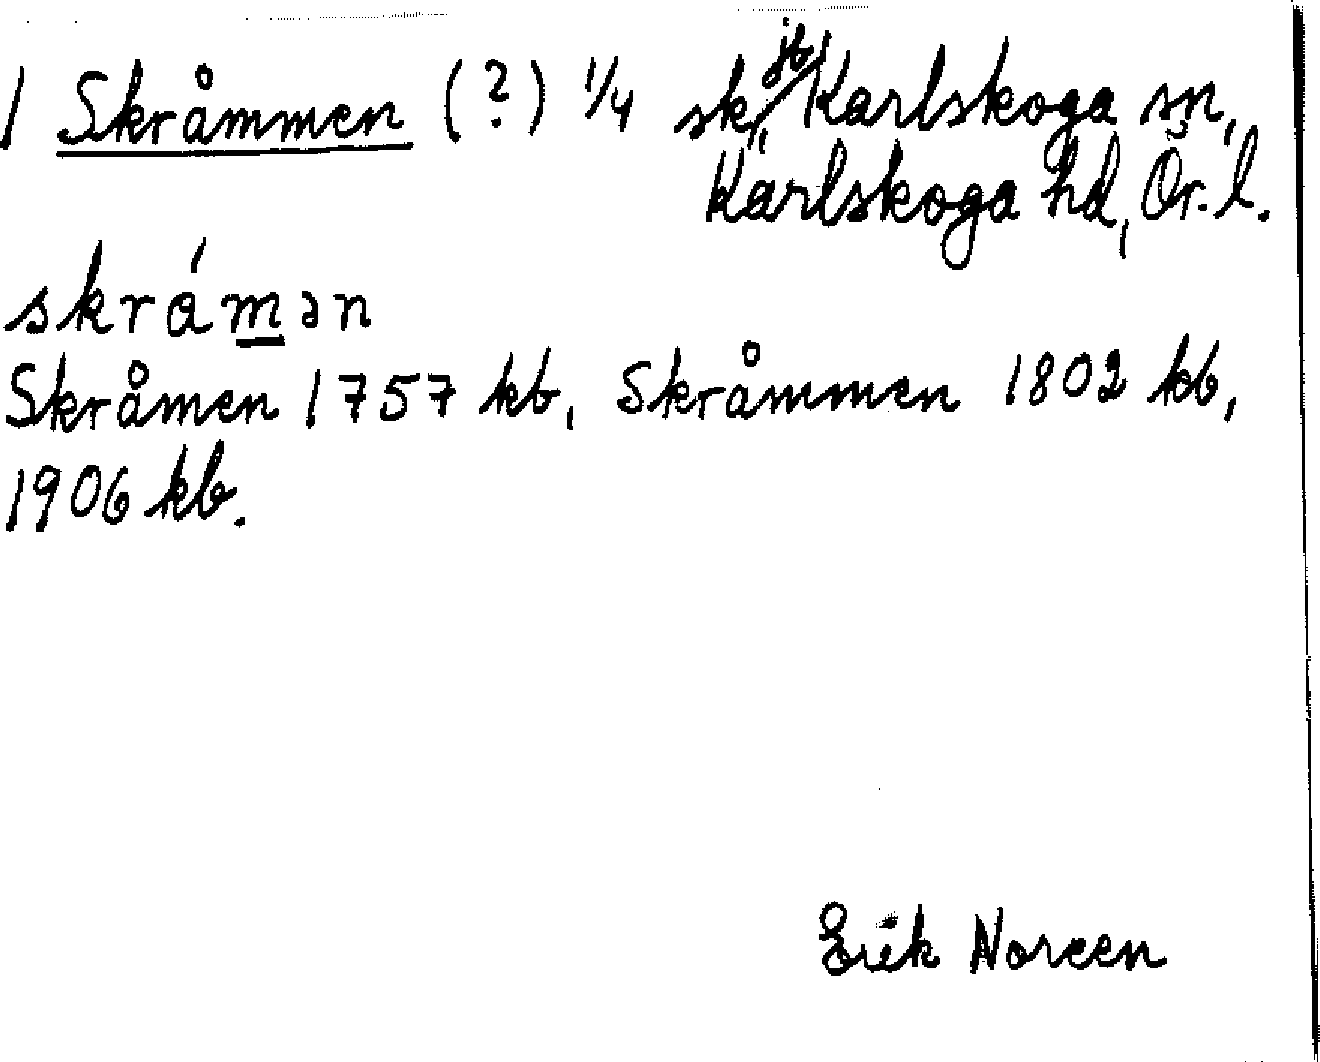 1 Skråmmen (?) 1/4 sk, jb Karlskoga sn,
Karlskoga hd, Ör. l.
skrámən
Skråmen 1757 kb, Skråmmen 1802 kb,
1906 kb.
Erik Noreen